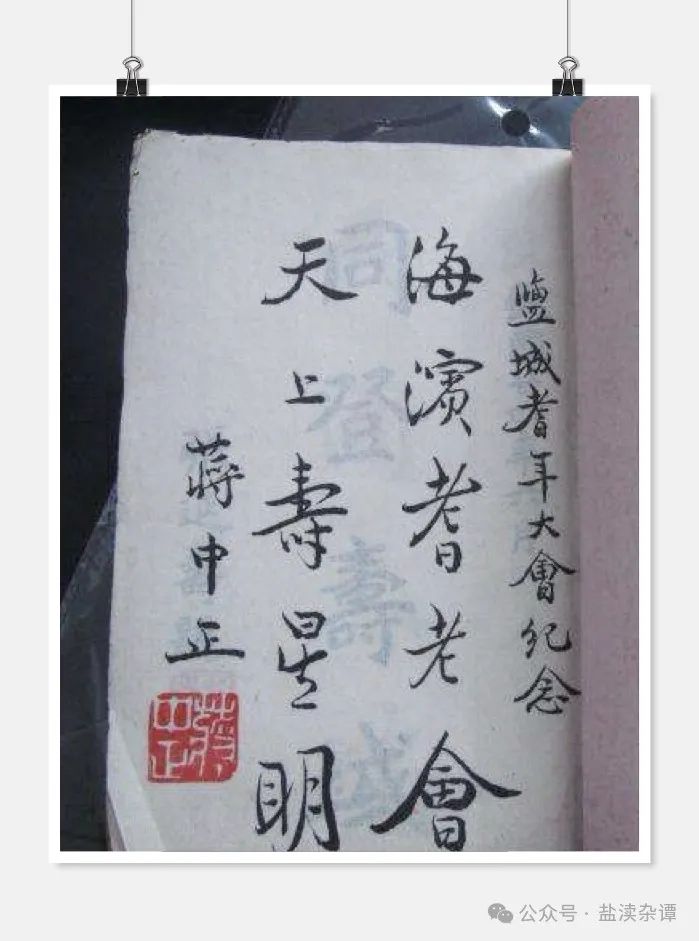 鹽城耆年大會紀念
海濱耆老會
天上壽星明
蔣中正
蔣中正
同登壽域
公众号 · 盐渎杂谭